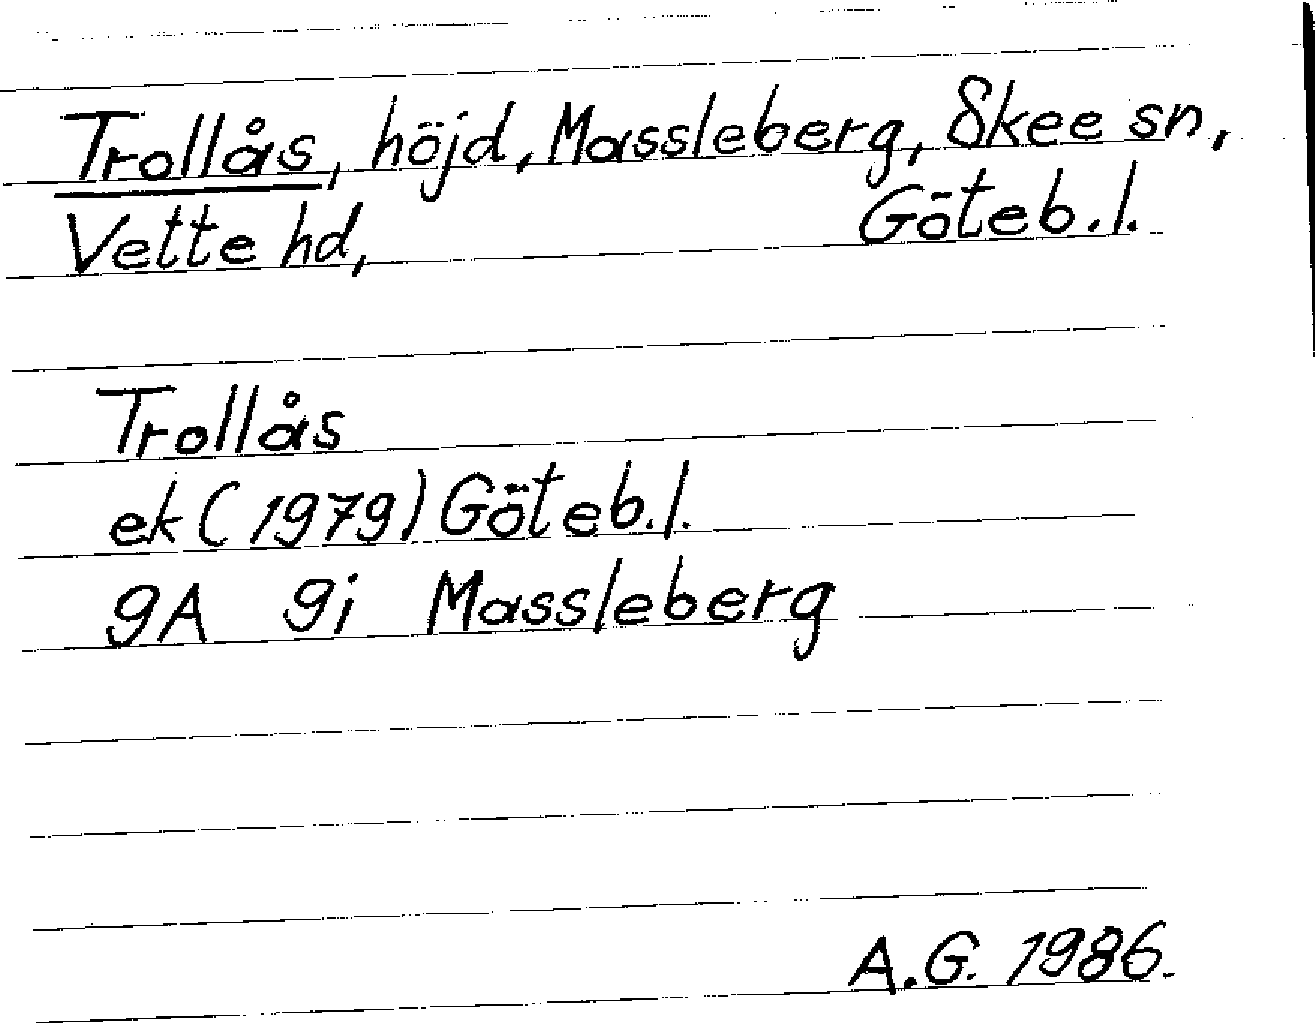 Trollås, höjd, Massleberg, Skee sn,
Vette hd, Göteb.l.
Trollås
ek (1979) Göteb.l.
9A 9i Massleberg
A.G. 1986.